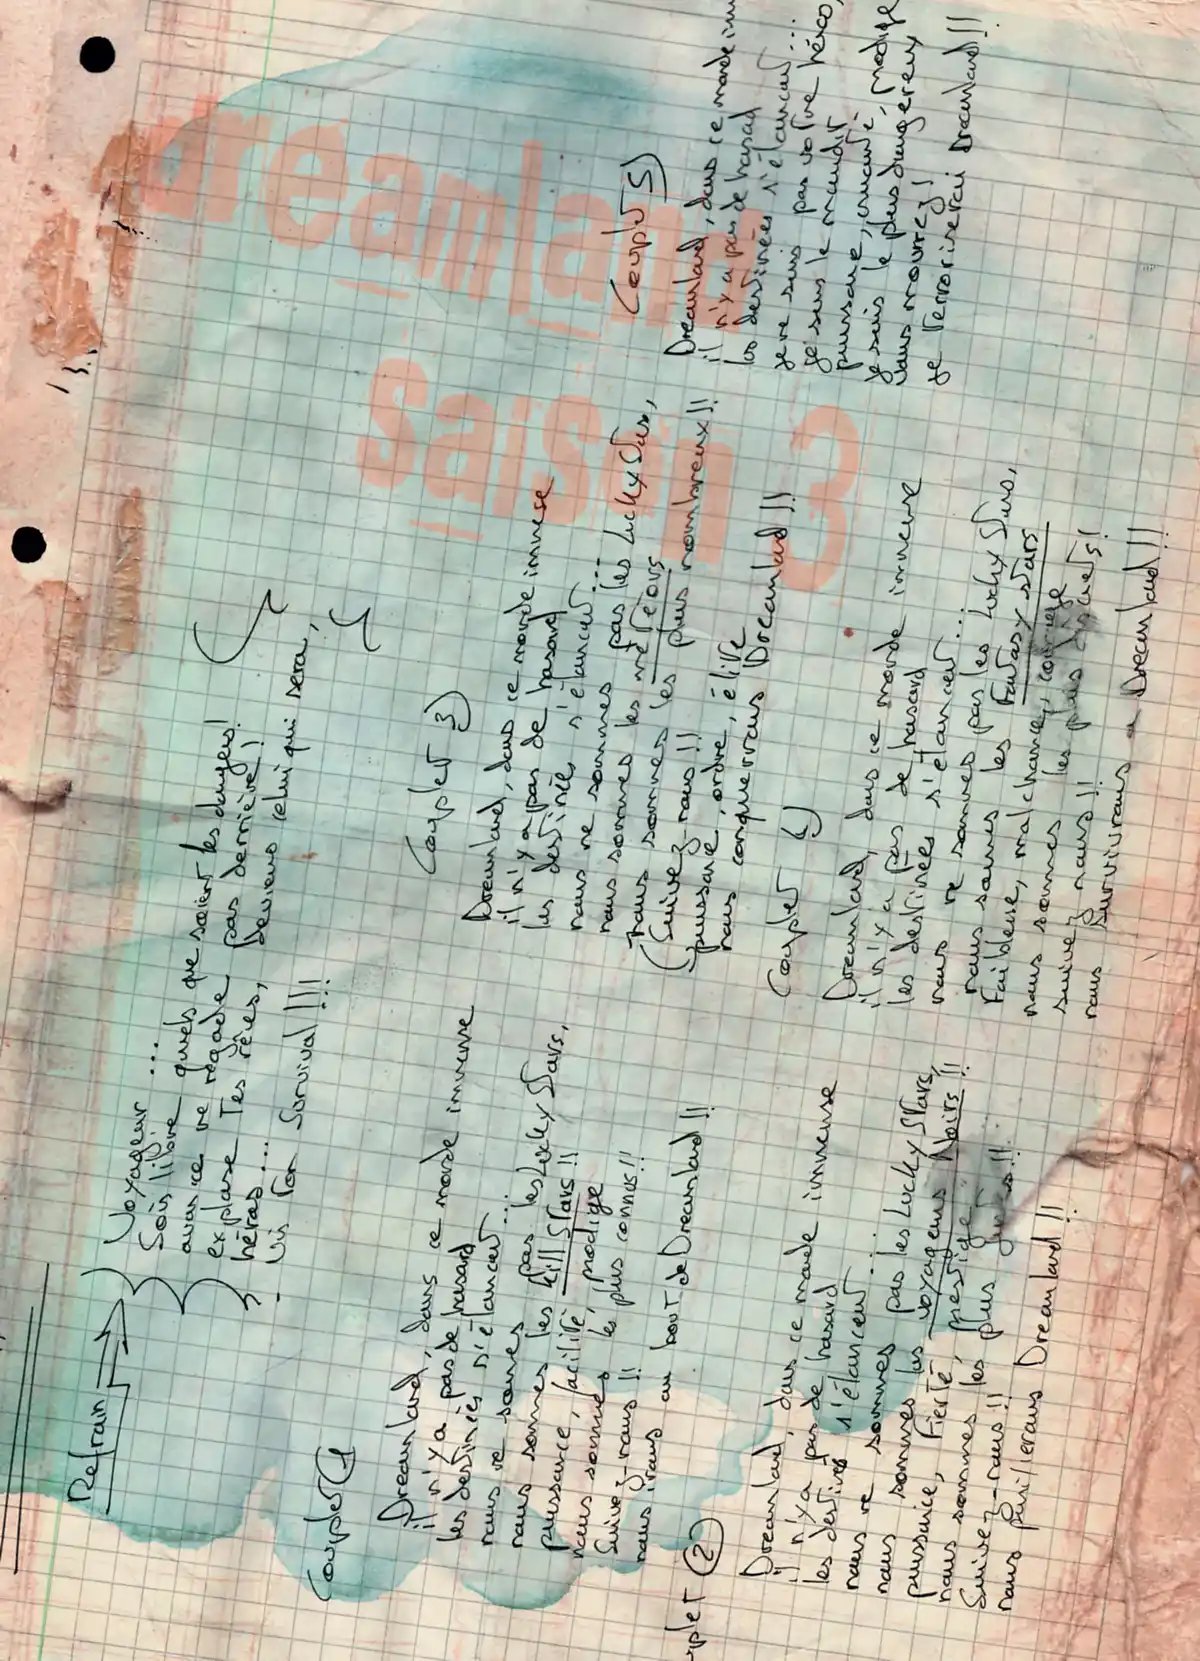 Dreamland
saison 3
Refrain
Voyageur ...
Sois libre
avance quels que soient les dangers!
ne regade pas derrière!
explose Tes rêves,
Deviens celui qui sera,
héros....
Survival!!!
Couplet 1
Dreamland, dans ce monde immense
il n'y a pas de hasard
les destinées s'élancent...
nous ne sommes pas les Lucky Stars,
nous sommes les Kill Stars!!
puissance, facilité, prodige
nous sommes les plus connus!!
Suivez-nous!!
nous irons au bout de Dreamland!!
uplet 2
Dreamland, dans ce monde immense
il n'y a pas de hasard
les destinées s'élancent
nous ne sommes pas les Lucky Stars,
nous sommes les voyageurs Noirs!!
puissance, Fierté, prestige
nous sommes les plus
Suivez-nous!!
nous pillerons Dreamland!!
Couplet 3
Dreamland, dans ce monde immense
il n'y a pas de hasard
les destinées s'élancent...
nous ne sommes pas les Lucky Stars,
nous sommes les météors
nous sommes les plus nombreux!!
(Suivez-nous!!
puissance, ordre, élite
nous conquerrons Dreamland!!
Couplet
Dreamland, dans ce monde immense
il n'y a pas de hasard
les destinées s'élancent...
nous ne sommes pas les Lucky Stars,
nous sommes les Fantasy Stars
Faiblesse, malchance, courage
nous sommes les plus discrets!
suivez nous!!
nous survivrons à Dreamland!!
Couplet 5
Dreamland, dans ce monde imm
il n'y a pas de hasard
les destinées s'élancent...
je ne suis pas votre héros,
je suis le maudit
puissance, cruauté, prodige
je suis le plus dangereux
vous mourrez!
je terroriserai Dreamland!!